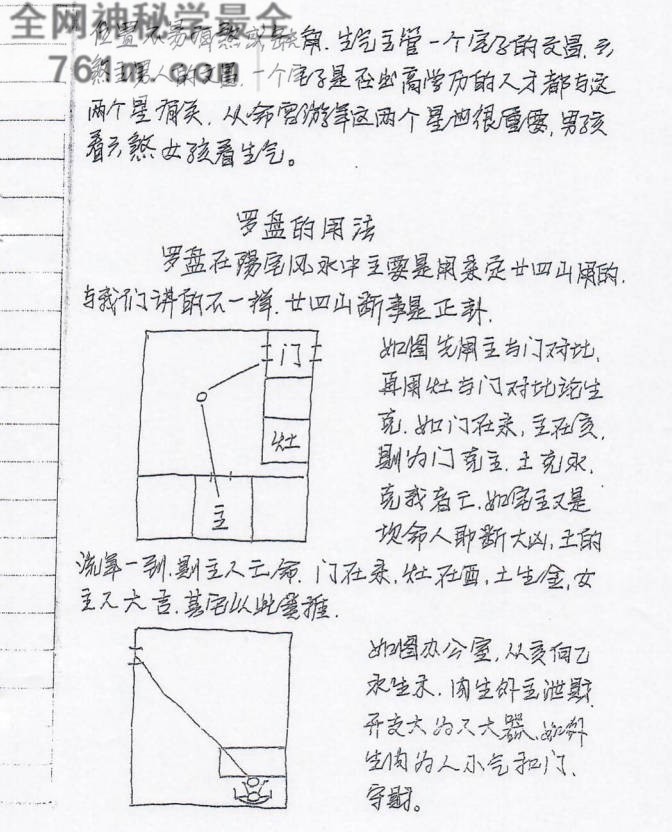 全网神秘学最全
761m.com
位置不易有煞或缺角．生气主管一个宅子的文昌．六
煞主男人的文昌．一个宅子是否出高学历的人才都与这
两个星有关．从命宫游年这两个星也很重要，男孩
看六煞女孩看生气。
罗盘的用法
罗盘在陽宅风水中主要是用来定廿四山用的．
与我们讲的不一样．廿四山断事是正卦．
门
灶
主
如图先用主与门对比，
再用灶与门对比论生
克．如门在未，主在亥，
则为门克主．土克水．
克我者亡．如宅主又是
坎命人即断大凶，土的
流年一到．则主人亡命．门在未，灶在酉，土生金，女
主人大吉．其宅以此类推．
如图办公室，从亥向乙
水生木．内生外主泄财
开支大为人大器．如外
生内为人小气和门、
守财。